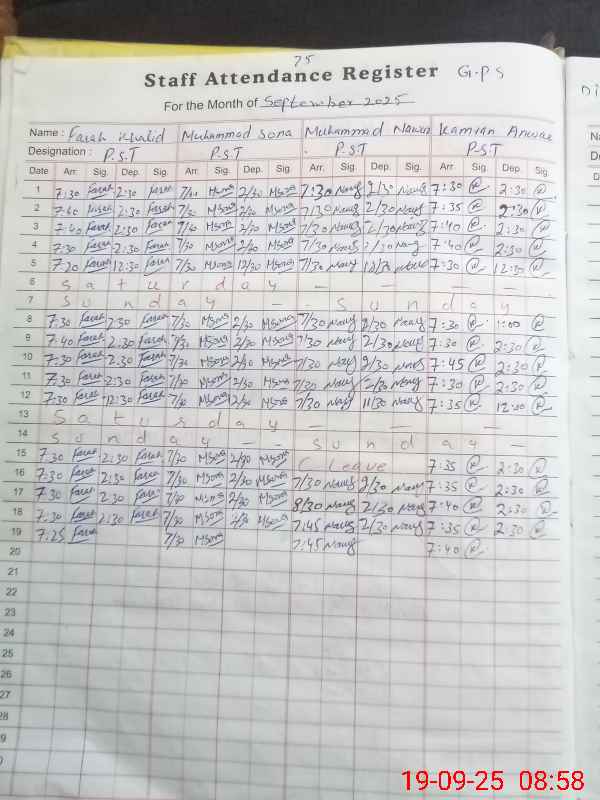 75
Staff Attendance Register G.P.S
For the Month of September 2025
Name : Farah Khalid Muhammad Sona Muhammad Kamran Anwar
Designation : P.S.T P.S.T P.S.T P.S.T
Date Arr. Sig. Dep. Sig. Arr. Sig. Dep. Sig. Arr. Sig. Dep. Sig. Arr. Sig. Dep. Sig.
1 7:30 Farah 2:30 Farah 7/30 MSona 2/30 MSona 7:30 Nawy 2/30 Nawy 7:30 2:30
2 7:40 Farah 2:30 Farah 7/30 MSona 2/30 MSona 7/30 Nawy 2/30 Nawy 7:35 2:30
3 7:40 Farah 2:30 Farah 7/40 MSona 2/30 MSona 7/30 Nawy 2/30 Nawy 7:40 2:30
4 7:30 Farah 2:30 Farah 7/30 MSona 2/30 MSona 7/30 Nawy 2/30 Nawy 7:40 2:30
5 7:20 Farah 12:30 Farah 7/30 MSona 12/30 MSona 7/30 Nawy 12/30 Nawy 7:30 12:30
6 Saturday — — — — —
7 Sunday — - Sunday
8 7:30 Farah 2:30 Farah 7/30 MSona 2/30 MSona 7/30 Nawy 2/30 Nawy 7:30 1:00
9 7:40 Farah 2:30 Farah 7/30 MSona 2/30 MSona 7/30 Nawy 2/30 Nawy 7:30 2:30
10 7:30 Farah 2:30 Farah 7/30 MSona 2/30 MSona 7/30 Nawy 2/30 Nawy 7:45 2:30
11 7:30 Farah 2:30 Farah 7/30 MSona 2/30 MSona 7/30 Nawy 2/30 Nawy 7:30 2:30
12 7:30 Farah 12:30 Farah 7/30 MSona 2/30 MSona 7/30 Nawy 11/30 Nawy 7:35 12:00
13 Saturday — — — —
14 Sunday — — Sunday —
15 7:30 Farah 2:30 Farah 7/30 MSona 2/30 MSona C Leave 7:35 2:30
16 7:30 Farah 2:30 Farah 7/30 MSona 2/30 MSona 7/30 Nawy 2/30 Nawy 7:35 2:30
17 7:30 Farah 2:30 Farah 7/30 MSona 2/30 MSona 8/30 Nawy 2/30 Nawy 7:40 2:30
18 7:30 Farah 2:30 Farah 7/30 MSona 2/30 MSona 7:45 Nawy 2/30 Nawy 7:35 2:30
19 7:25 Farah 7/30 MSona 7:45 Nawy 7:40
20
21
22
23
24
25
26
27
28
29
19-09-25 08:58